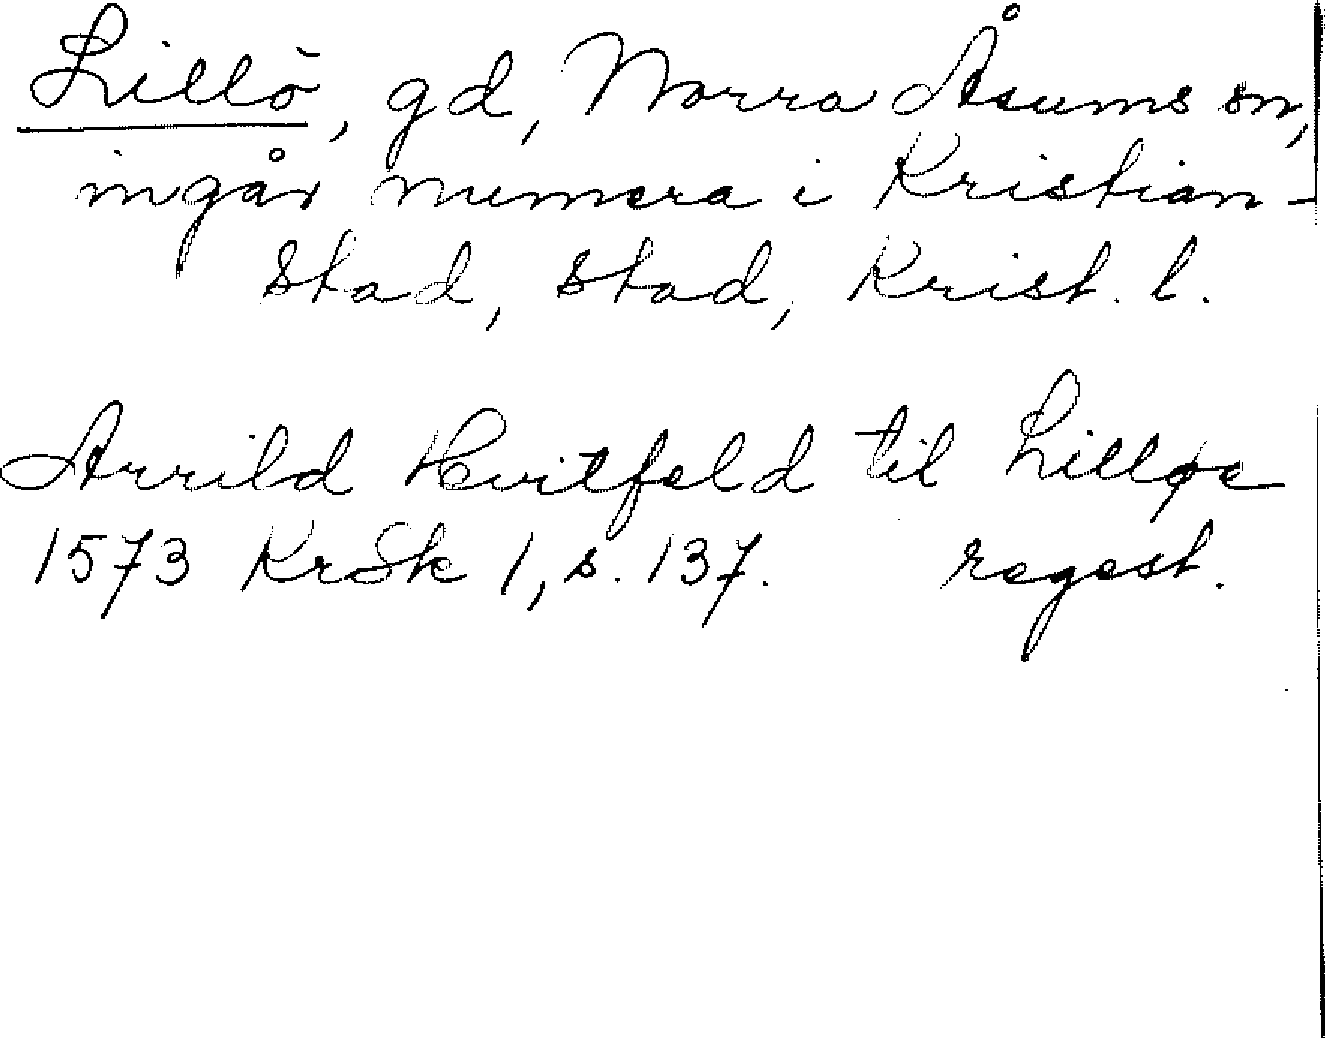 Lillö, gd, Norra Åsums sn,
ingår numera i Kristian-
stad, stad, Krist. l.
Arvild Hvitfeld til Lilløe
1573 KrSk 1, s. 137. regest.